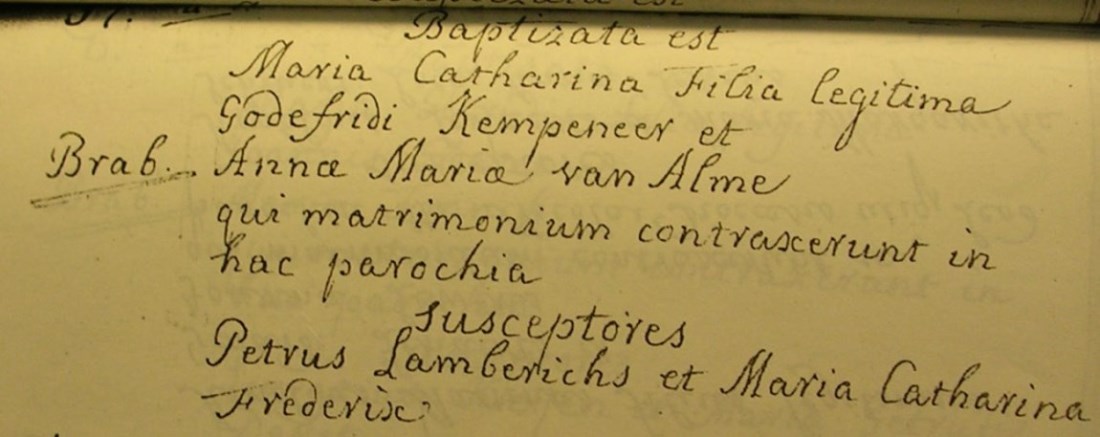 Baptizata est
Maria Catharina Filia legitima
Godefridi Kempeneer et
Brab. Annæ Mariæ van Alme
qui matrimonium contraxerunt in
hac parochia
susceptores
Petrus Lamberichs et Maria Catharina
Frederix